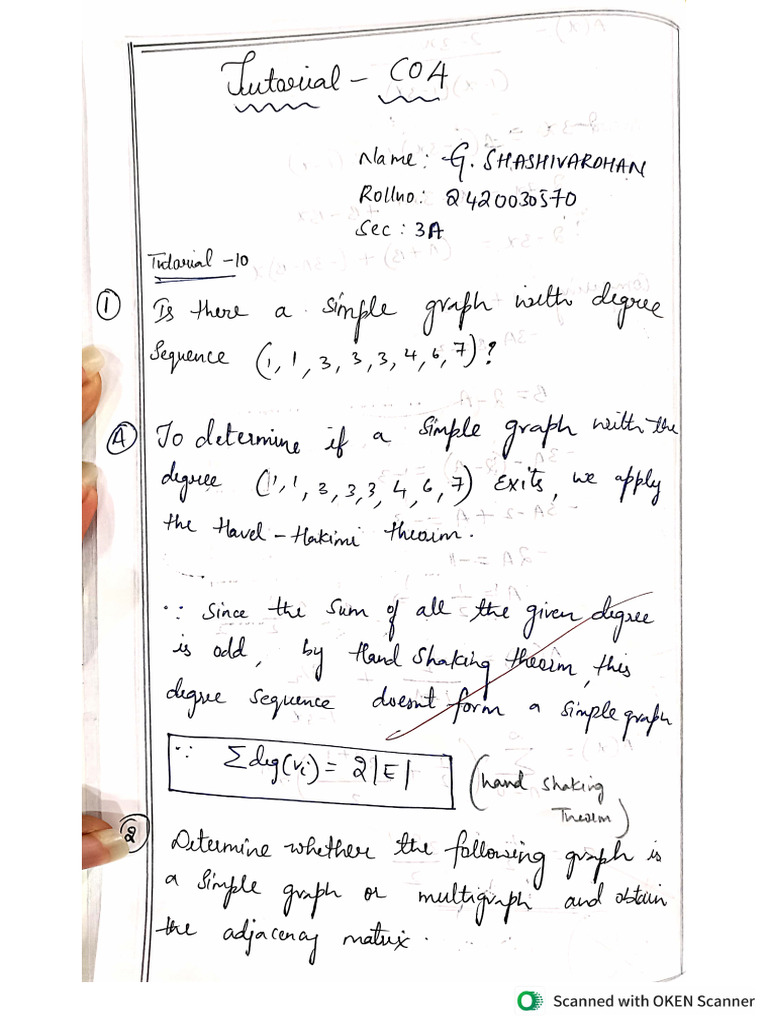 Tutorial - CO4
Name: G. SHASHIVARDHAN
Rollno: 2420030570
Sec: 3A
Tutorial -10
① Is there a simple graph with degree
Sequence (1, 1, 3, 3, 3, 4, 6, 7)?
Ⓐ To determine if a simple graph with the
degree (1, 1, 3, 3, 3, 4, 6, 7) exits, we apply
the Havel-Hakimi theorim.
∵ Since the sum of all the given degree
is odd, by Hand Shaking theorim, this
degree sequence doesnt form a simple graph
∵ Σdeg(vi) = 2|E| (hand shaking
Theorim)
② Determine whether the following graph is
a simple graph or multigraph and obtain
the adjacency matrix.
Scanned with OKEN Scanner